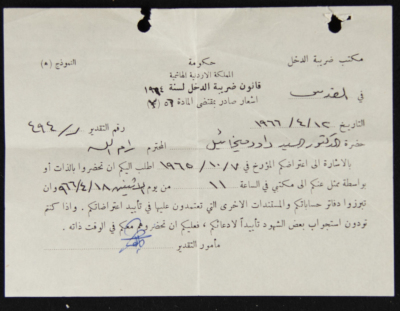 مكتب ضريبة الدخل حكومة النموذج (٨)
المملكة الاردنية الهاشمية
في القدس قانون ضريبة الدخل لسنة ١٩٦٤
اشعار صادر بمقتضى المادة
التاريخ ١٢/٤/١٩٦٦ رقم التقدير ٤٩٤
حضرة الدكتور داود ميخائيل المحترم رام الله
بالاشارة الى اعتراضكم المؤرخ في ٧/١٠/١٩٦٥ اطلب اليكم ان تحضروا بالذات أو
بواسطة ممثل عنكم الى مكتبي في الساعة ١١ من يوم الاثنين ١٨/٤/٩٦٦ وان
تبرزوا دفاتر حساباتكم والمستندات الاخرى التي تعتمدون عليها في تأييد اعتراضاتكم. واذا كنتم
تودون استجواب بعض الشهود تأييداً لادعائكم، فعليكم ان تحضروهم معكم في الوقت ذاته.
مأمور التقدير